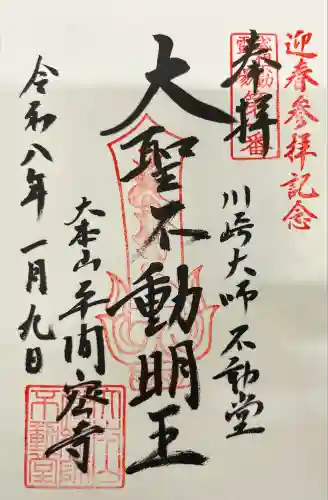 迎春参拝記念
奉拝
川崎大師不動堂
大聖不動明王
大本山平間密寺
令和八年一月九日